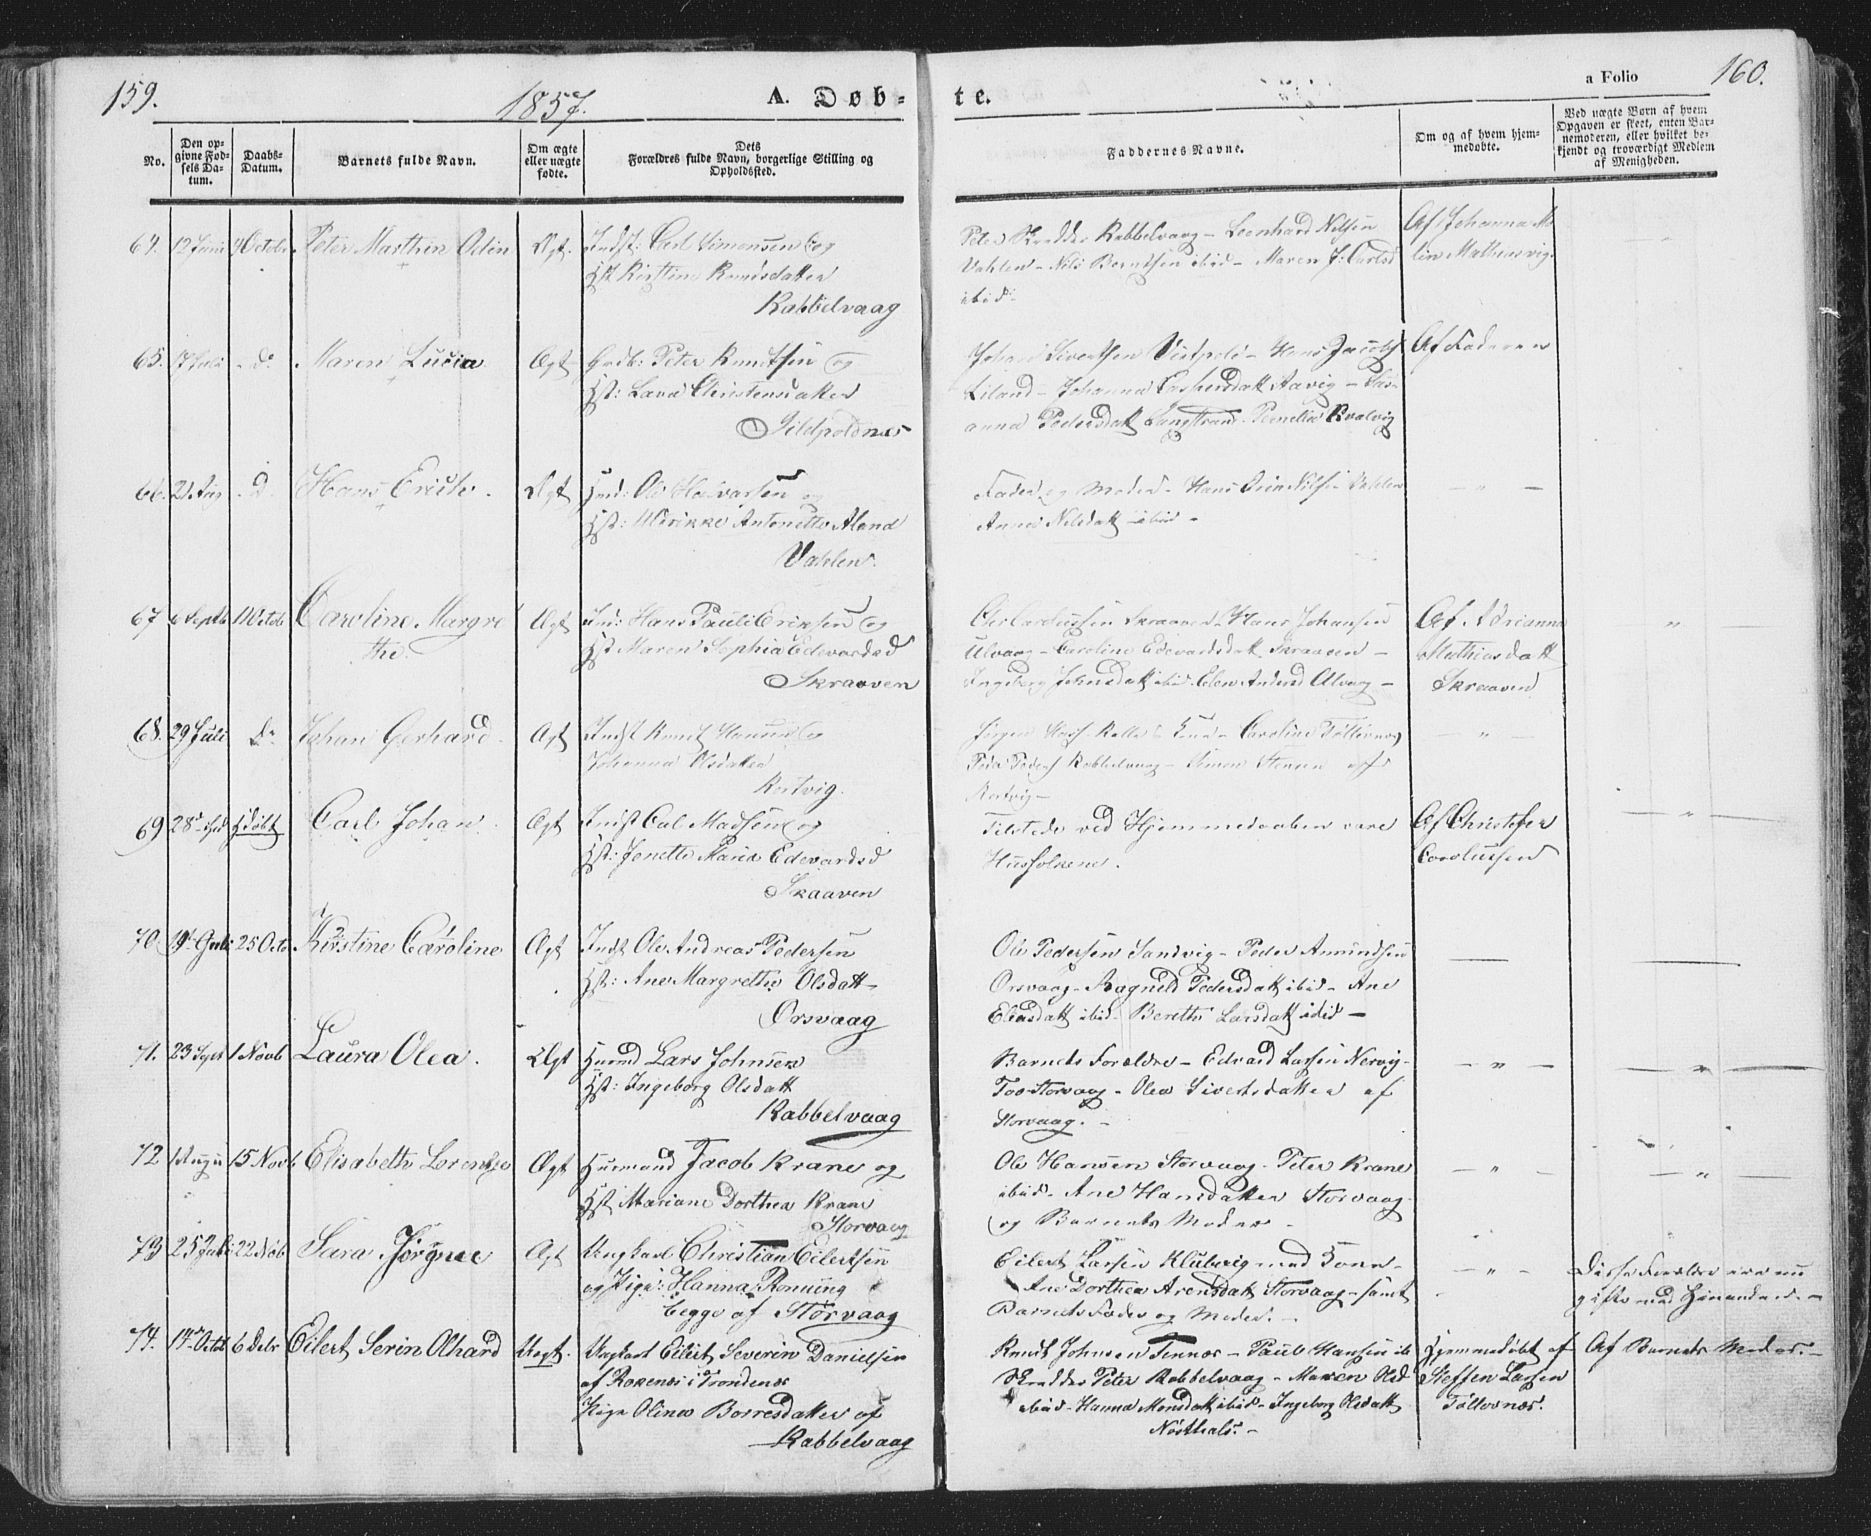 159.
1857.
A. Døb-
te.
a Folio
160.
No.
Den op-
givne Fød-
sels Da-
tum.
Daabs-
Datum.
Barnets fulde Navn.
Om ægte
eller uægte
fødte.
Dets
Forældres fulde Navn, borgerlige Stilling og
Opholdssted.
Faddernes Navne.
Om og af hvem hjem-
medøbte.
Ved uægte Børn af hvem
Opgaven er skeet, enten Bar-
nemoderen, eller hvilket be-
kjendt og troværdigt Medlem
af Menigheden.
64. 12 Juni 4 Octobr Peter Marthin Odin Ægt. Indst: Carl Simonsen og
Hst Kirstine Knudsdatter
Rabbelvaag
Peter Skrædder Rabbelvaag - Leonhard Nilsen
Vahlen - Nils Berntsen ibid - Maren J: Carlsd
ibid
Af Johanna
Mathiasvig.
65. 17 Juli do Maren Lucia Ægt Peter Knudtsen og
Hst: Lava Christensdatter
Sildpoldnæs
Johan Sivertsen Sildpold - Hans Jacobs
Liland - Johanna Aavig -
anna Pedersdatt Langstrand - Pernelia Kvalvig
Af Faderen
66. 21 Aug d. Hans Erich. Ægt Hmd: Ole Halvorsen og
Hst: Ulrikke Antonette Aland
Vahlen.
Fader og Moder - Hans Nilsen Vahlen
Anne Nilsdatt ibid -
- " -
67 6 Septb 11 Octob Caroline Margre
the.
Ægt Ind: Hans Pauli Eriksen og
Hst Maren Sophia Edevardsd
Skraaven
Carolussen Skraaven - Hans Johansen
Ulvaag - Caroline Edevardsdatt Skraaven -
Ingeborg Johnsdatt ibid - Elen Andersd Ulvaag -
Af Adrianna
Mathiasdatt
Skraaven
" -
68. 29 Juli do Johan Gerhard. Ægt Indst Knud Hansen og
Johanna Olsdatter
Rortvig.
Jørgen Kalle - Caroline Tollevnæs
Peder Peders Rabbelvaag - Simon Steensen af
Rortvig -
- " -
69 28d Hjdøbt Carl Johan. Ægt Indst Carl Madsen og
Hst: Jenette Maria Edevardsd
Skraaven
Tilstede ved Hjemmedaaben vare
Husfolkene.
Af Christofer
Carolussen
- " -
70 19d Juli 25 Octo Kirstine Caroline Ægt Indst Ole Andreas Pedersen
Hst: Ane Margrethe Olsdatt -
Orsvaag
Ole Pedersen Sandvig - Peder Amundsen
Orsvaag - Ragnild Pedersdatt ibid - Ane
Eliasdatt ibid - Berethe Larsdatt ibid -
71. 23 Sept 1 Novb Laura Olea. Ægt Huusmd Lars Johnsen
Hst: Ingeborg Olsdatt
Rabbelvaag
Barnets Forældre - Edvard Larsen Nervig -
Storvaag - Olea Sivertsdatter af
Storvaag. -
- " - - " -
72 1 August 15 Novb Elisabeth Lorentze Ægt Husmand Jacob Krane og
Hst Mariane Dorthea Krane
Storvaag
Ole Hansen Storvaag - Peter Krane
ibid - Ane Hansdatter Storvaag
og Barnets Moder -
- " - - " -
73 25 Juli 22 Nob Sara Jørgine Ægt Ungkarl Christian Eilertsen
og Pige: Hanna Ronning
begge af Storvaag
Eilert Larsen Klubvig med Kone -
Ane Dorthea Arensdatt Storvaag - samt
Barnets Fader og Moder. -
- " -
Disse Forældre ere nu
gifte med hinanden. -
74. 17d Octob 6 Debr Eilert Serin Olhard Uægt. Ungkarl Eilert Severin Danielsen
af Roxenæs i Trondenæs
Pige Olina Borresdatter af
Rabbelvaag
Knud Johnsen Finnæs - Paul Hansen ib
Skrædder Peter Rabbelvaag - Maren Olsd
ibid - Hanna Monsdatt ibid - Ingeborg Olsdatt
Nøsthals. -
Hjemmedøbt af
Steffen Larsen
Tollevnæs.
Af Barnets Moder. -